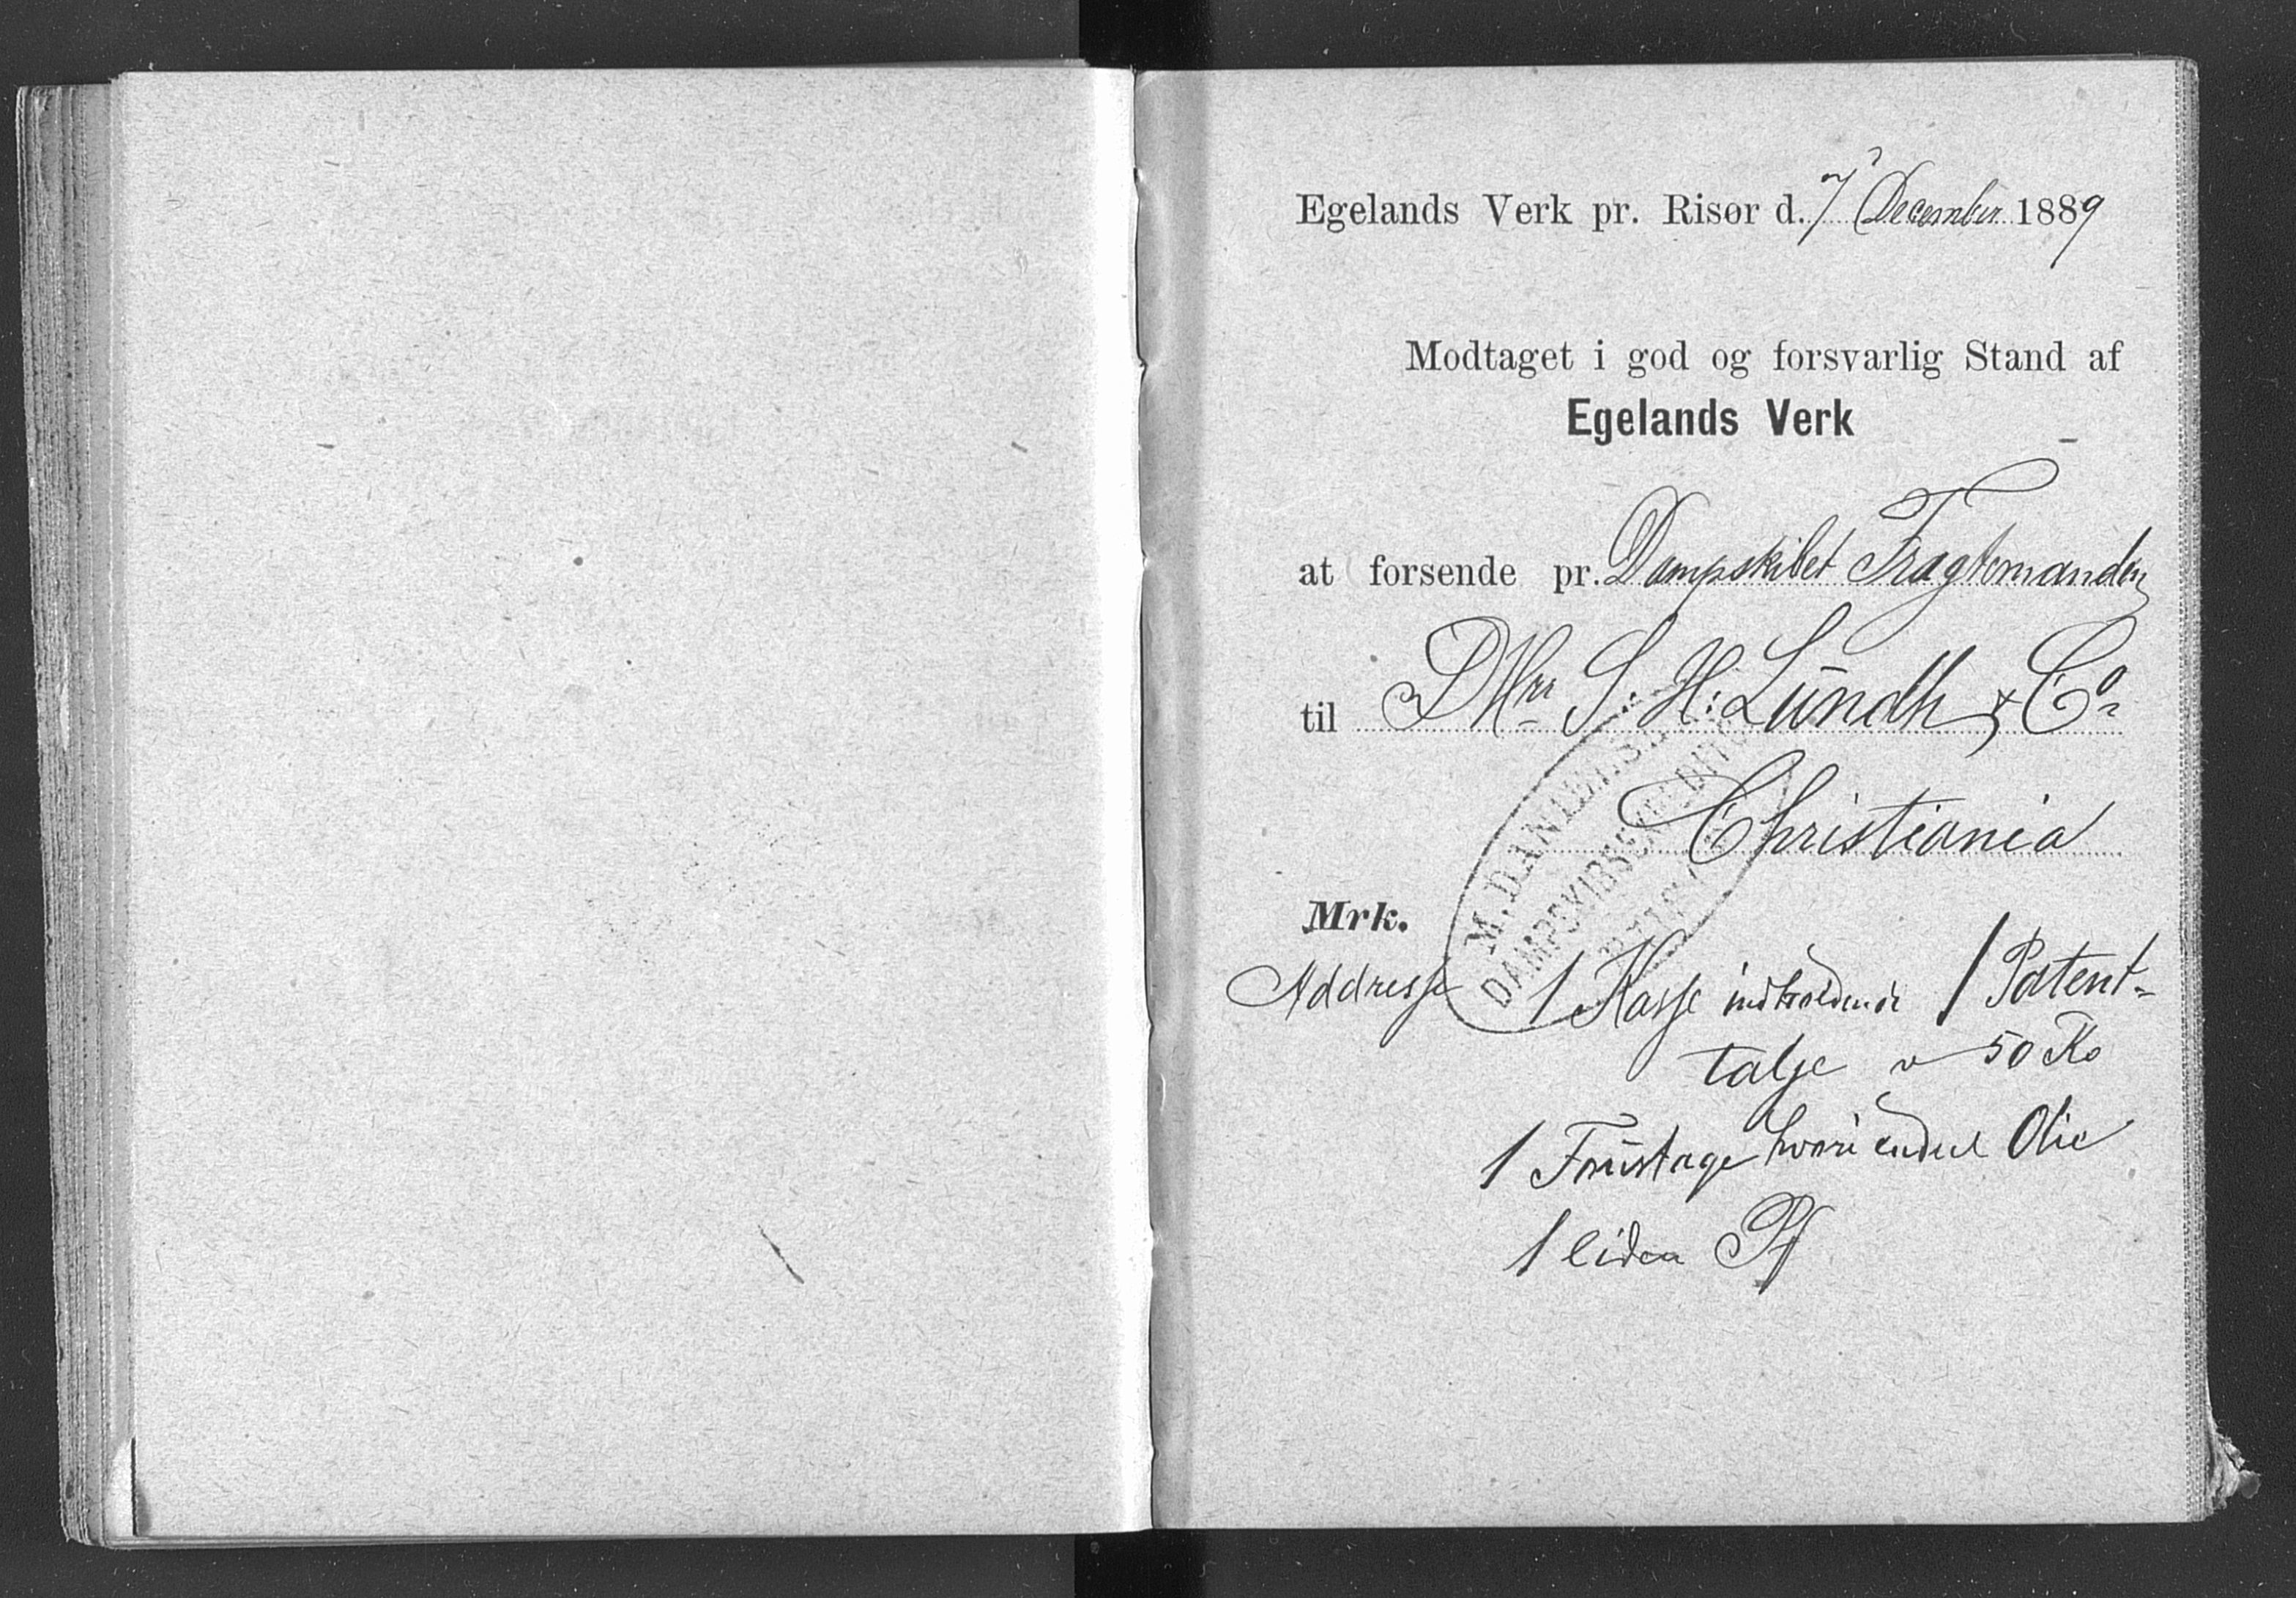 Egelands Verk pr. Risør d. 7 December 1889
Modtaget i god og forsvarlig Stand af
Egelands Verk
at forsende pr. Dampskibet Fragtemanden
til DHrr S: H: Lundh & Co
Christiania
M. DANIELSEN
DAMPSKIBSEXPEDITØR
Mrk.
Addresse 1 Kasse indholdende 1 Patent-
talje v 50 Ko
1 Fustage hvori endel Olie
1 liden